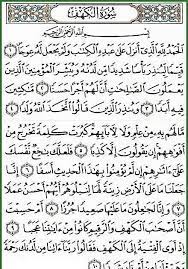 سُورَةُ الكَهْفِ
بِسْمِ اللَّهِ الرَّحْمَٰنِ الرَّحِيمِ
ٱلْحَمْدُ لِلَّهِ ٱلَّذِىٓ أَنزَلَ عَلَىٰ عَبْدِهِ ٱلْكِتَٰبَ وَلَمْ يَجْعَل لَّهُۥ عِوَجَا ١
قَيِّمًا لِّيُنذِرَ بَأْسًا شَدِيدًا مِّن لَّدُنْهُ وَيُبَشِّرَ ٱلْمُؤْمِنِينَ ٱلَّذِينَ
يَعْمَلُونَ ٱلصَّٰلِحَٰتِ أَنَّ لَهُمْ أَجْرًا حَسَنًا ٢ مَّٰكِثِينَ
فِيهِ أَبَدًا ٣ وَيُنذِرَ ٱلَّذِينَ قَالُوا۟ ٱتَّخَذَ ٱللَّهُ وَلَدًا ٤
مَّا لَهُم بِهِۦ مِنْ عِلْمٍ وَلَا لِءَابَآئِهِمْ كَبُرَتْ كَلِمَةً تَخْرُجُ مِنْ
أَفْوَٰهِهِمْ إِن يَقُولُونَ إِلَّا كَذِبًا ٥ فَلَعَلَّكَ بَٰخِعٌ نَّفْسَكَ
عَلَىٰٓ ءَاثَٰرِهِمْ إِن لَّمْ يُؤْمِنُوا۟ بِهَٰذَا ٱلْحَدِيثِ أَسَفًا ٦ إِنَّا جَعَلْنَا
مَا عَلَى ٱلْأَرْضِ زِينَةً لَّهَا لِنَبْلُوَهُمْ أَيُّهُمْ أَحْسَنُ عَمَلًا
٧ وَإِنَّا لَجَٰعِلُونَ مَا عَلَيْهَا صَعِيدًا جُرُزًا ٨ أَمْ حَسِبْتَ
أَنَّ أَصْحَٰبَ ٱلْكَهْفِ وَٱلرَّقِيمِ كَانُوا۟ مِنْ ءَايَٰتِنَا عَجَبًا ٩
إِذْ أَوَى ٱلْفِتْيَةُ إِلَى ٱلْكَهْفِ فَقَالُوا۟ رَبَّنَآ ءَاتِنَا مِن لَّدُنكَ رَحْمَةً